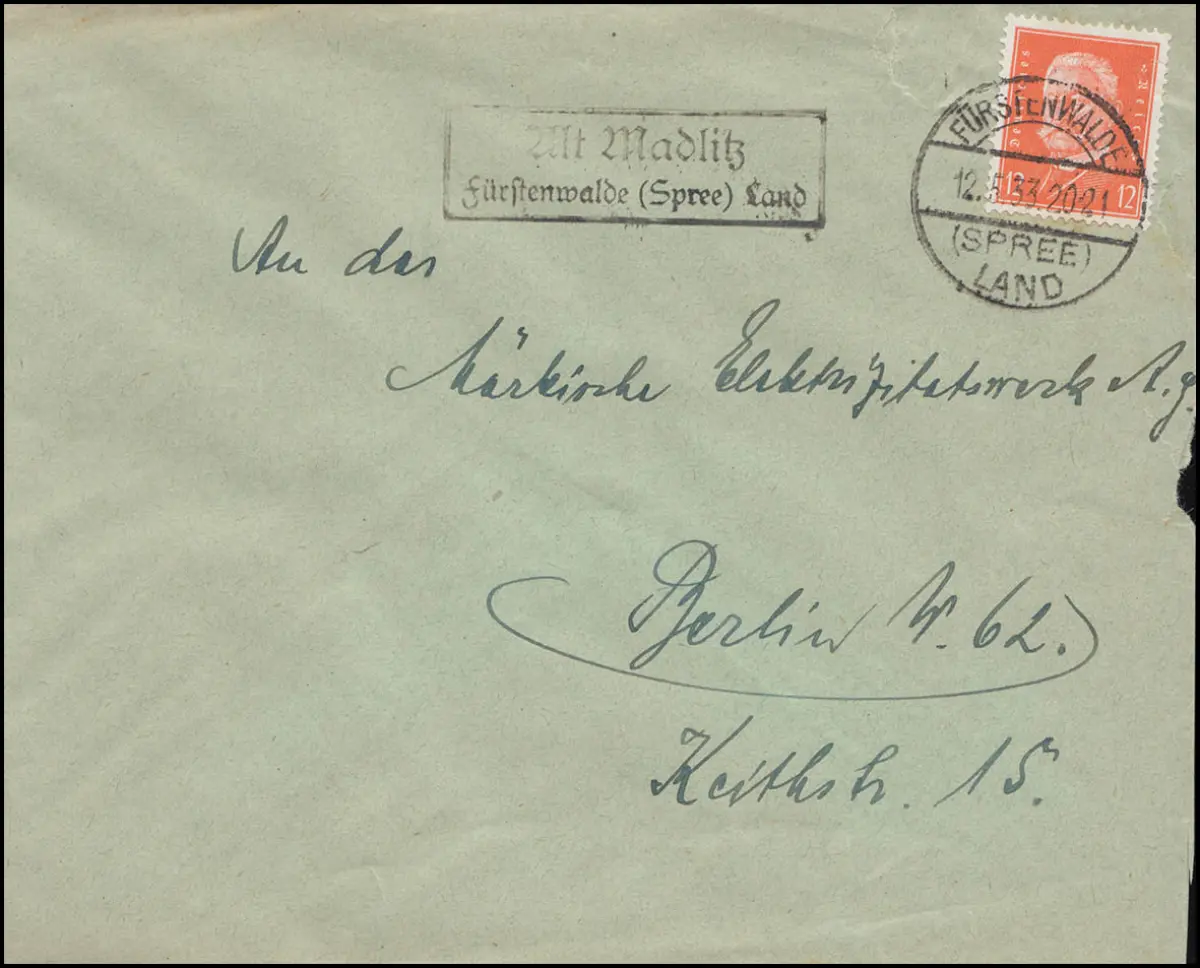 Alt Madlitz
Fürstenwalde (Spree) Land
FÜRSTENWALDE
12.5.33.20-21
(SPREE)
LAND
12
An das
Märkische Elektrizitätswerk A.g.
Berlin W. 62.
Keithstr. 15.